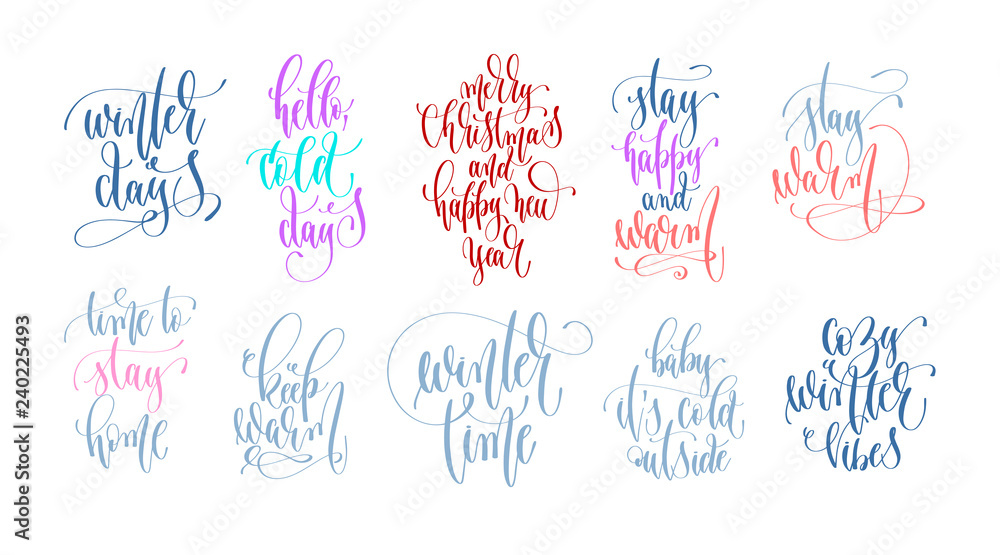 winter
days
hello,
cold
days
merry
Christmas
and
happy new
year
stay
happy
and
warm
stay
warm
time to
stay
home
keep
warm
winter
time
baby
it's cold
outside
cozy
winter
vibes
Adobe Stock | #240225493